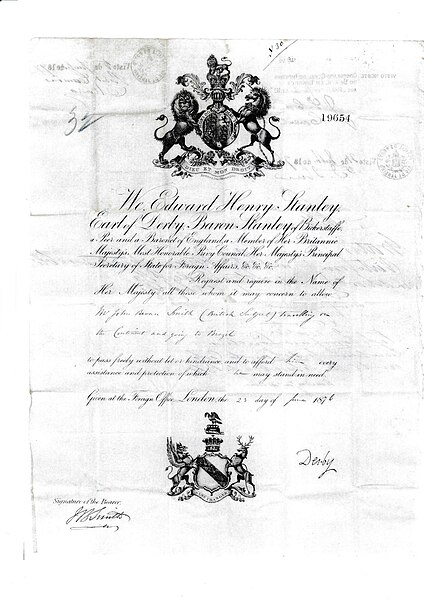 Nº 30
19654
DIEU ET MON DROIT
We Edward Henry Stanley,
Earl of Derby, Baron Stanley of Bickerstaffe,
a Peer and a Baronet of England, a Member of Her Britannic
Majesty's Most Honorable Privy Council, Her Majesty's Principal
Secretary of State for Foreign Affairs, &c. &c. &c.
Request and require in the Name of
Her Majesty, all those whom it may concern to allow
Mr John Smith (British Subject) travelling on
the Continent and going to Brazil
to pass freely without let or hindrance, and to afford him every
assistance and protection of which he may stand in need.
Given at the Foreign Office, London, the 23 day of June 1876
Derby
SANS CHANGER
Signature of the Bearer.
J B Smith